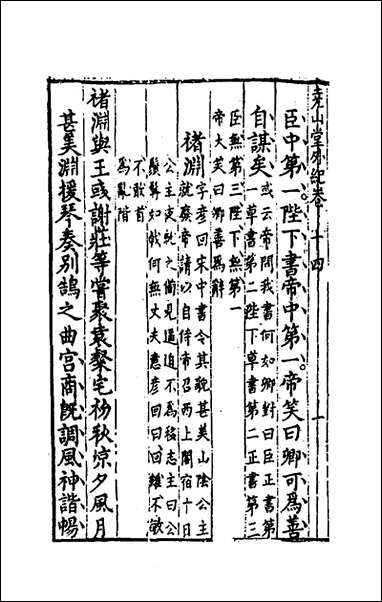 堯山堂外紀卷十四
一
臣中第一陛下書帝中第一帝笑曰卿可為善
自謀矣或云帝問我書何如卿對曰臣正書第
一草書第二陛下草書第二正書第三
臣無第三陛下無第一
帝大笑曰卿善為辭
褚淵字彥回宋中書令其貌甚美山陰公主
就廢帝請以自侍帝召西上閣宿十日
公主夜就之備見逼迫不為移志主曰公
鬚髯如戟何無丈夫意彥回曰回雖不敏
不敢首
為亂階
褚淵與王彧謝莊等嘗聚袁粲宅初秋涼夕風月
甚美淵援琴奏別鵠之曲宮商既調風神諧暢